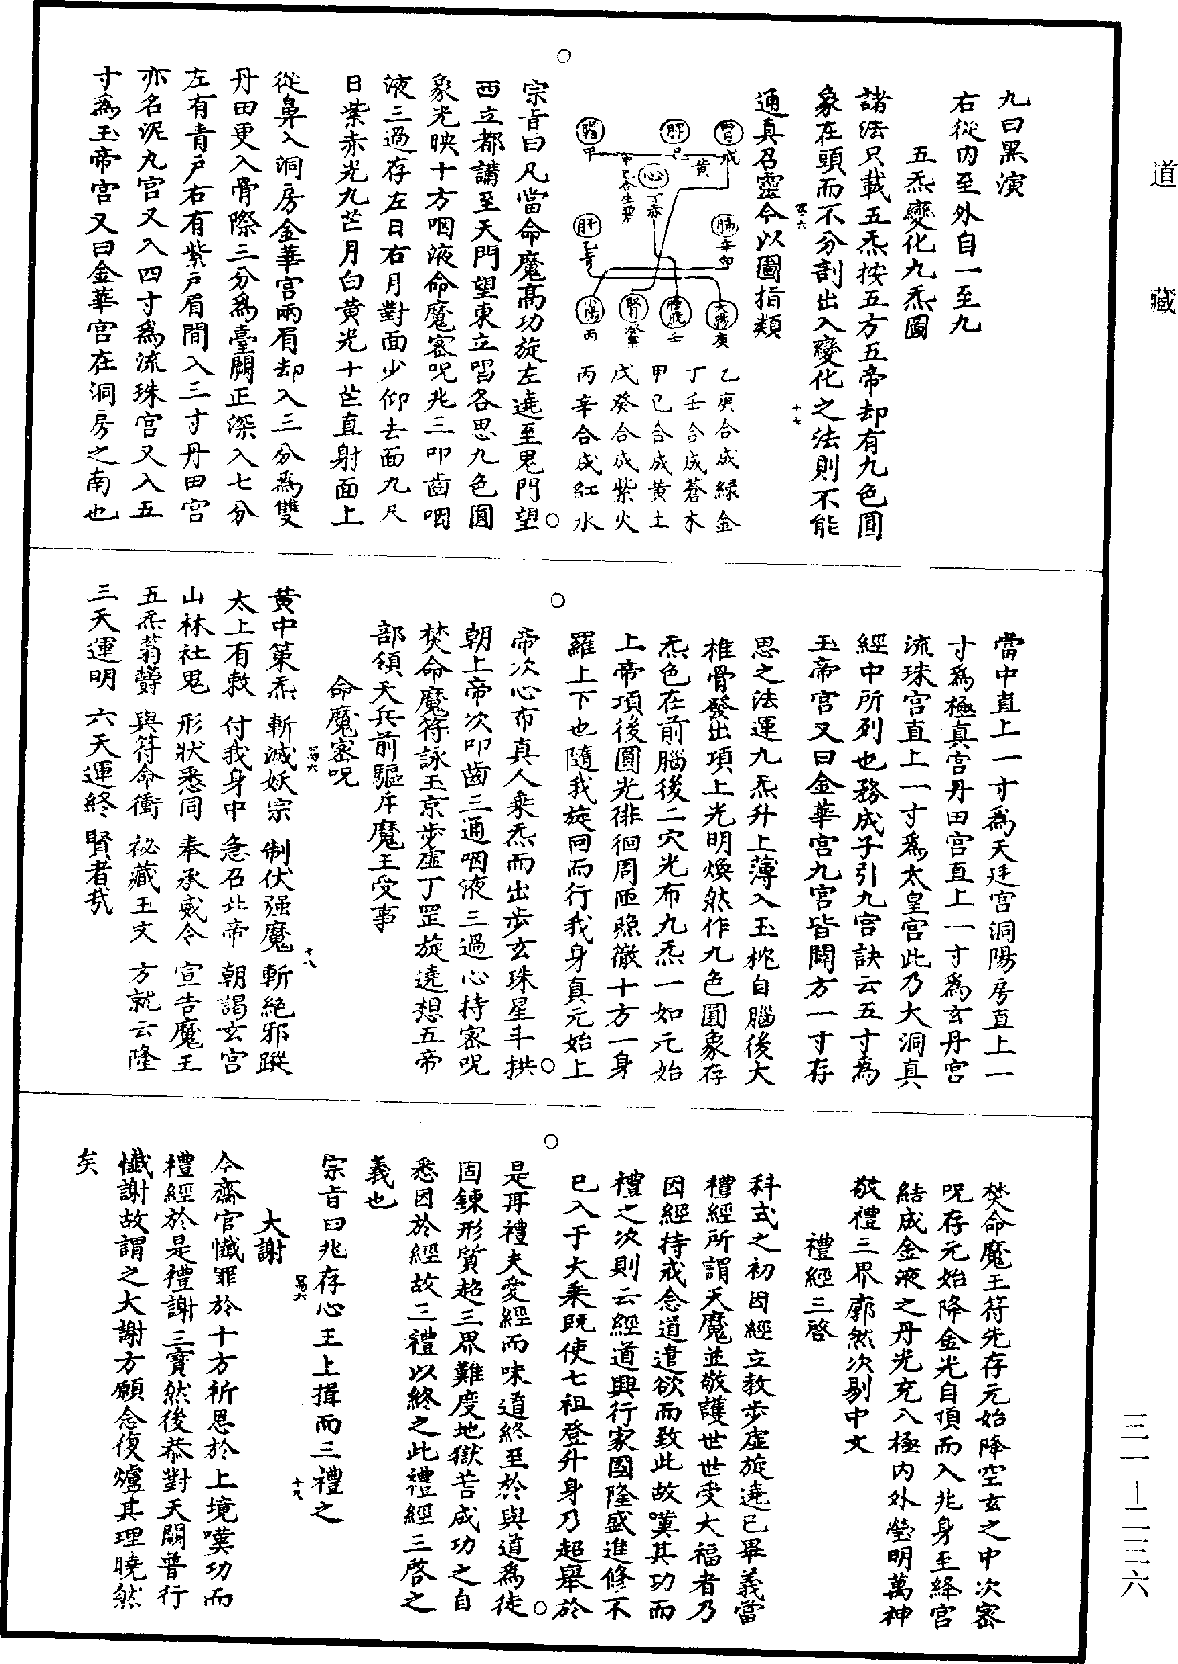 道藏
九曰黑演
右從內至外自一至九
五炁變化九炁圖
諸法只載五炁按五方五帝却有九色圓
象在頭而不分剖出入變化之法則不能
通真召靈今以圖指類
乙庚合成綠金
丁壬合成蒼木
甲己合成黃土
戊癸合成紫火
丙辛合成紅水
宗旨曰凡當命魔高功旋左遶至鬼門望
西立都講至天門望東立唱各思九色圓
象光映十方咽液命魔密呪兆三叩齒咽
液三過存左日右月對面少仰去面九尺
日紫赤光九芒月白黃光十芒直射面上
從鼻入洞房金華宮兩眉却入三分爲雙
丹田更入骨際三分爲臺闕正深入七分
左有青戶右有紫戶眉間入三寸丹田宮
亦名泥丸宮又入四寸爲流珠宮又入五
寸爲玉帝宮又曰金華宮在洞房之南也
當中直上一寸爲天廷宮洞陽房直上一
寸爲極真宮丹田宮直上一寸爲玄丹宮
流珠宮直上一寸爲太皇宮此乃大洞真
經中所列也務成子引九宮訣云五寸爲
玉帝宮又曰金華宮九宮皆闊方一寸存
思之法運九炁升上薄入玉枕自腦後大
椎骨發出項上光明煥然作九色圓象存
炁色在前腦後二穴光布九炁一如元始
上帝項後圓光徘徊周匝照徹十方一身
羅上下也隨我旋回而行我身真元始上
帝次心布真人乘炁而出步玄珠星斗拱
朝上帝次叩齒三通咽液三過心持密呪
焚命魔符詠玉京步虛丁罡旋遶想五帝
部領天兵前驅斥魔王受事
命魔密呪
黃中策炁 斬滅妖宗 制伏强魔 斬絕邪蹤
太上有敕 付我身中 急召北帝 朝謁玄宮
山林社鬼 形狀悉同 奉承威令 宣告魔王
五炁蓊欝 與符命衝 祕藏玉文 方就云隆
三天運明 六天運終 賢者哉
焚命魔王符先存元始降空玄之中次密
呪存元始降金光自頂而入兆身至絳宮
結成金液之丹光充八極內外瑩明萬神
敬禮三界廓然次剔中文
禮經三啓
科式之初因經立教步虛旋遶已畢義當
禮經所謂天魔並敬護世世受大福者乃
因經持戒念道遣欲而致此故嘆其功而
禮之次則云經道興行家國隆盛進修不
已入于大乘既使七祖登升身乃超舉於
是再禮夫愛經而味道終至於與道爲徒
固鍊形質超三界難度地獄苦成功之自
悉因於經故三禮以終之此禮經三啓之
義也
宗旨曰兆存心王上揖而三禮之
大謝
今齋官懺罪於十方祈恩於上境嘆功而
禮經於是禮謝三寶然後恭對天闕普行
懺謝故謂之大謝方願念復爐其理曉然
矣
三一—二三六